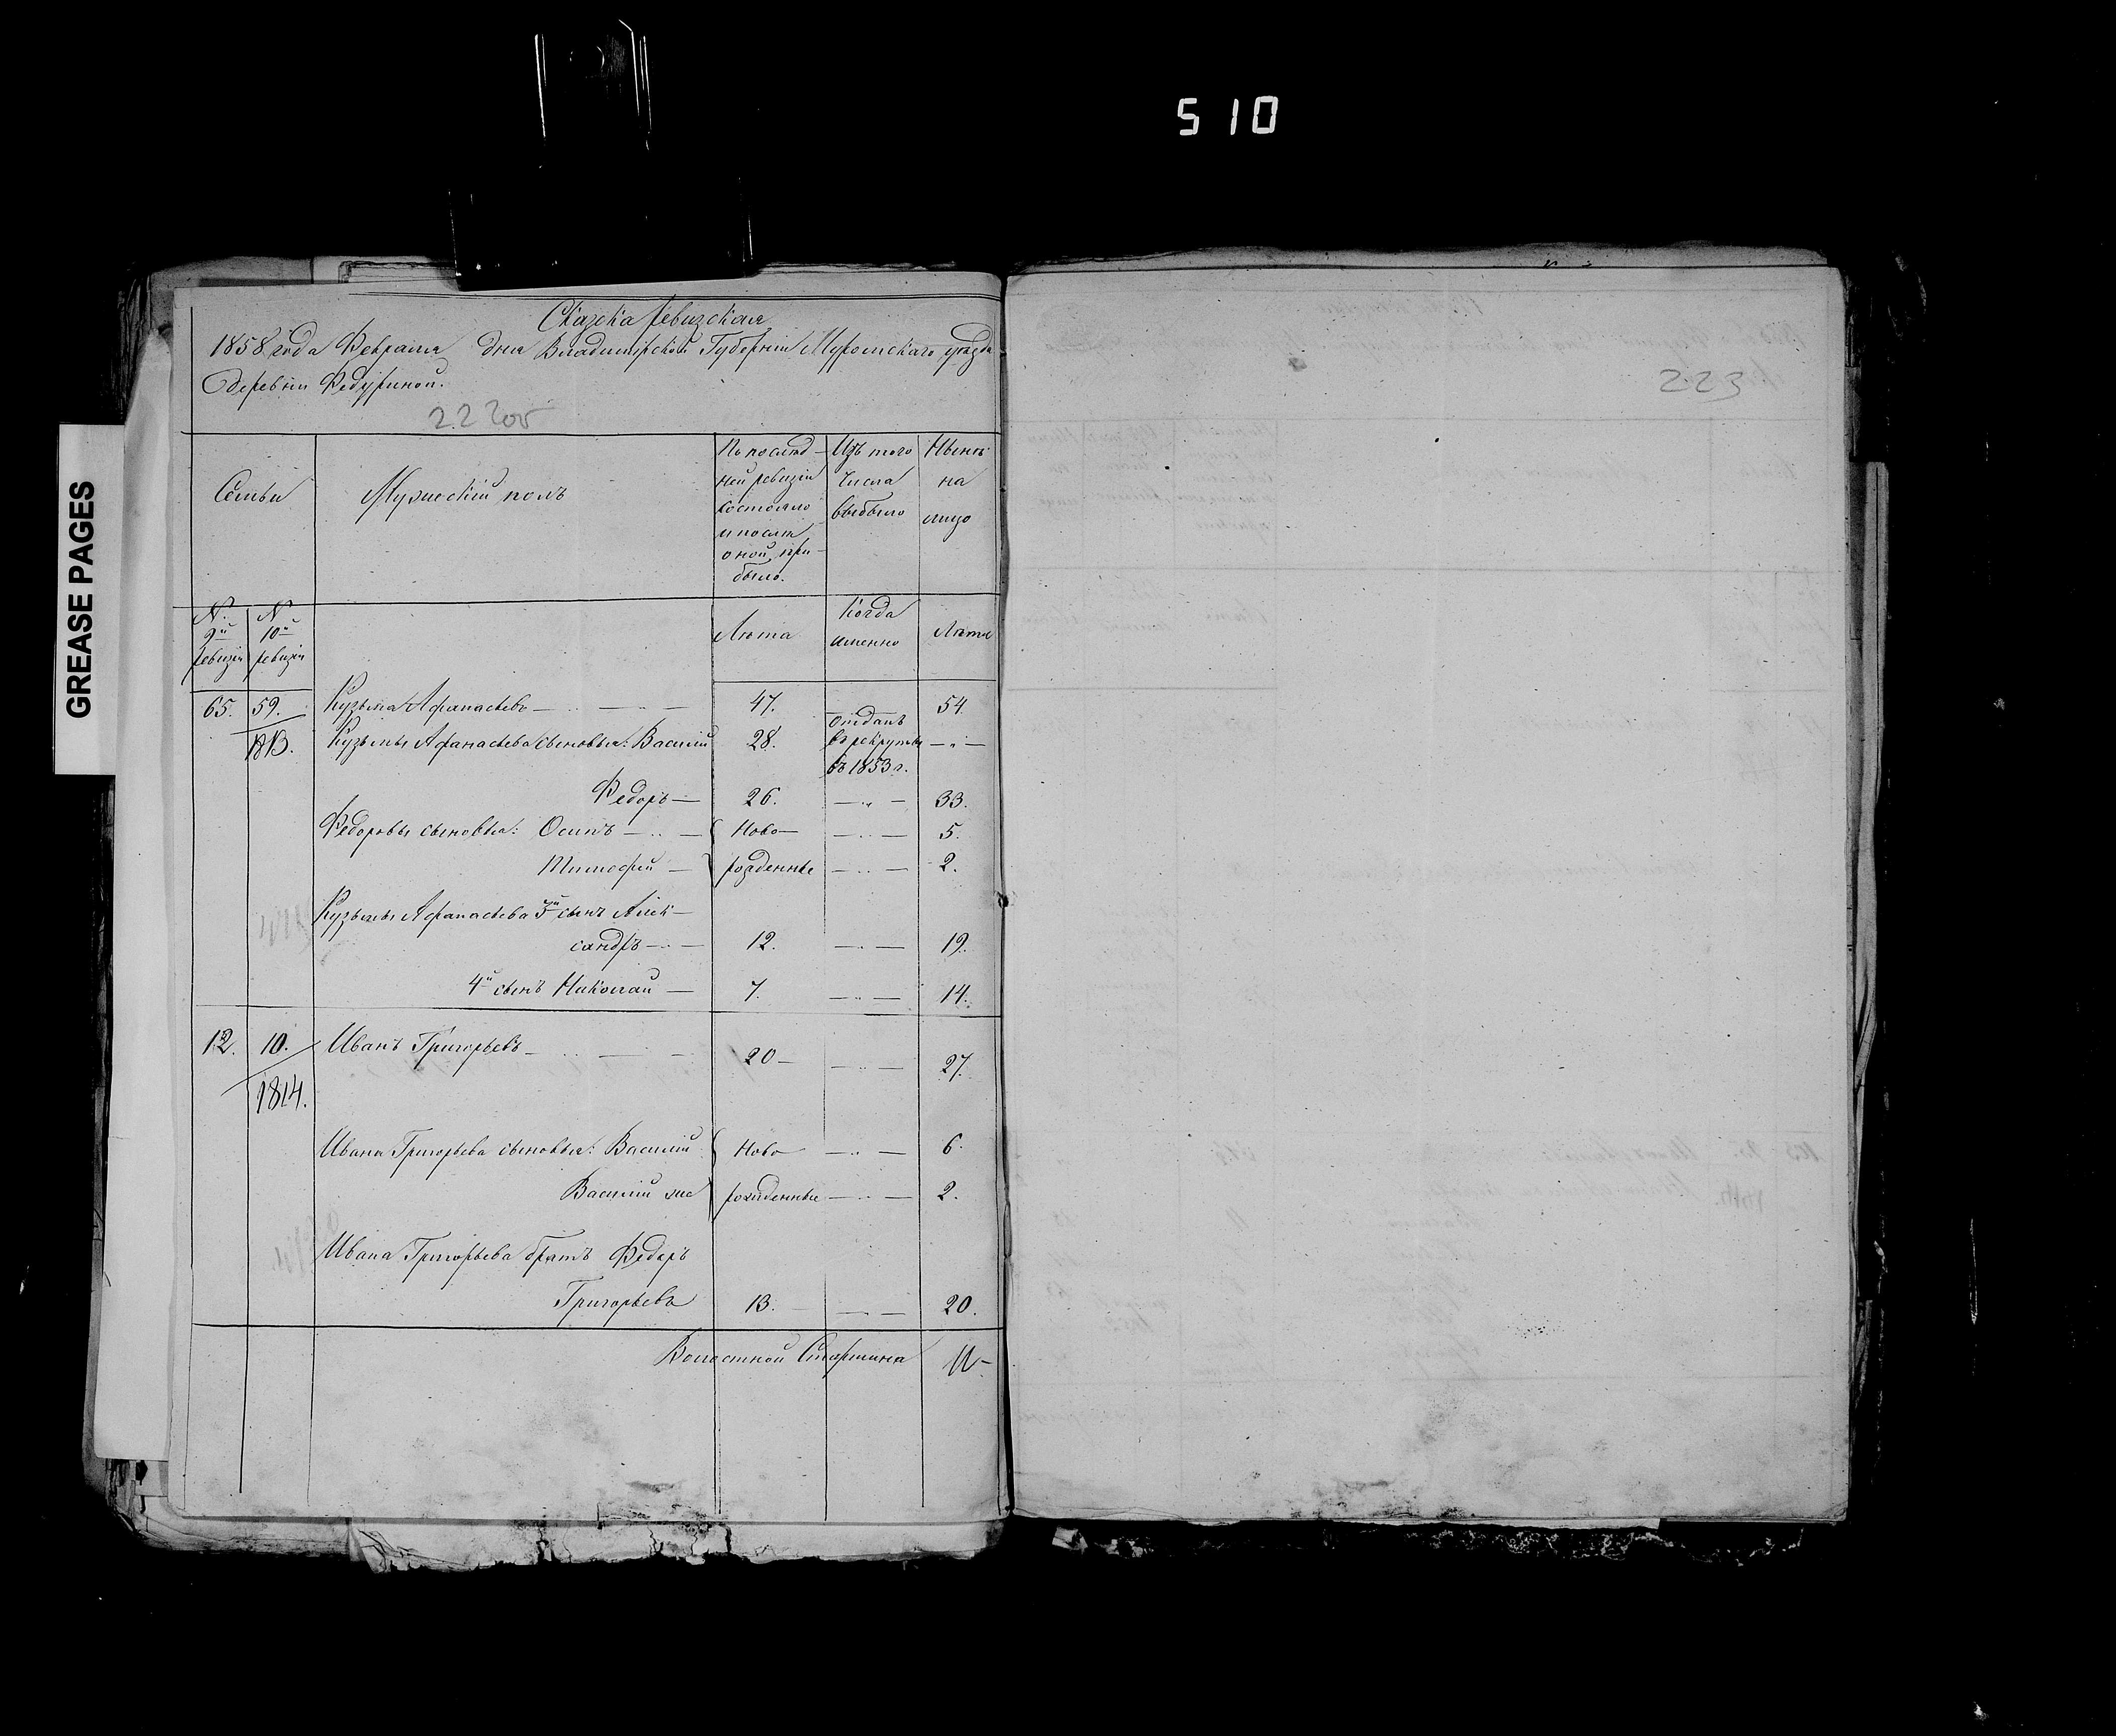 510
GREASE PAGES
Сказка ревизская
1858 года Февраля дня Владимірской Губерніи Муромскаго уезда
деревни Федуриной.
222 об
223
Семьи
Мужескій полъ
По послѣд-
ней ревизіи
состояло
и послѣ
оной при-
было.
Изъ того
числа
выбыло
Нынѣ
на
лицо
№
9й
ревизіи
№
10й
ревизіи
Лѣта
Когда
именно
Лѣта
65. 59. Кузьма Афанасьевъ — 47. 54.
1813. Кузьмы Афанасьева сыновья: Василій 28. отданъ въ рекруты въ 1853 г. — „ —
Федоръ — 26. — „ — 33.
Федоровы сыновья: Осипъ — Ново — „ — 5.
Тимофей — рожденные — „ — 2.
Кузьмы Афанасьева 3й сынъ Алек-
сандръ — 12. — „ — 19.
4й сынъ Николай — 7. — „ — 14.
12. 10. Иванъ Григорьевъ — 20 — — „ — 27.
1814.
Ивана Григорьева сыновья: Василій Ново — „ — 6.
Василій же рожденные — „ — 2.
Ивана Григорьева братъ Федоръ
Григорьевъ 13. — „ — 20.
Волостной Старшина